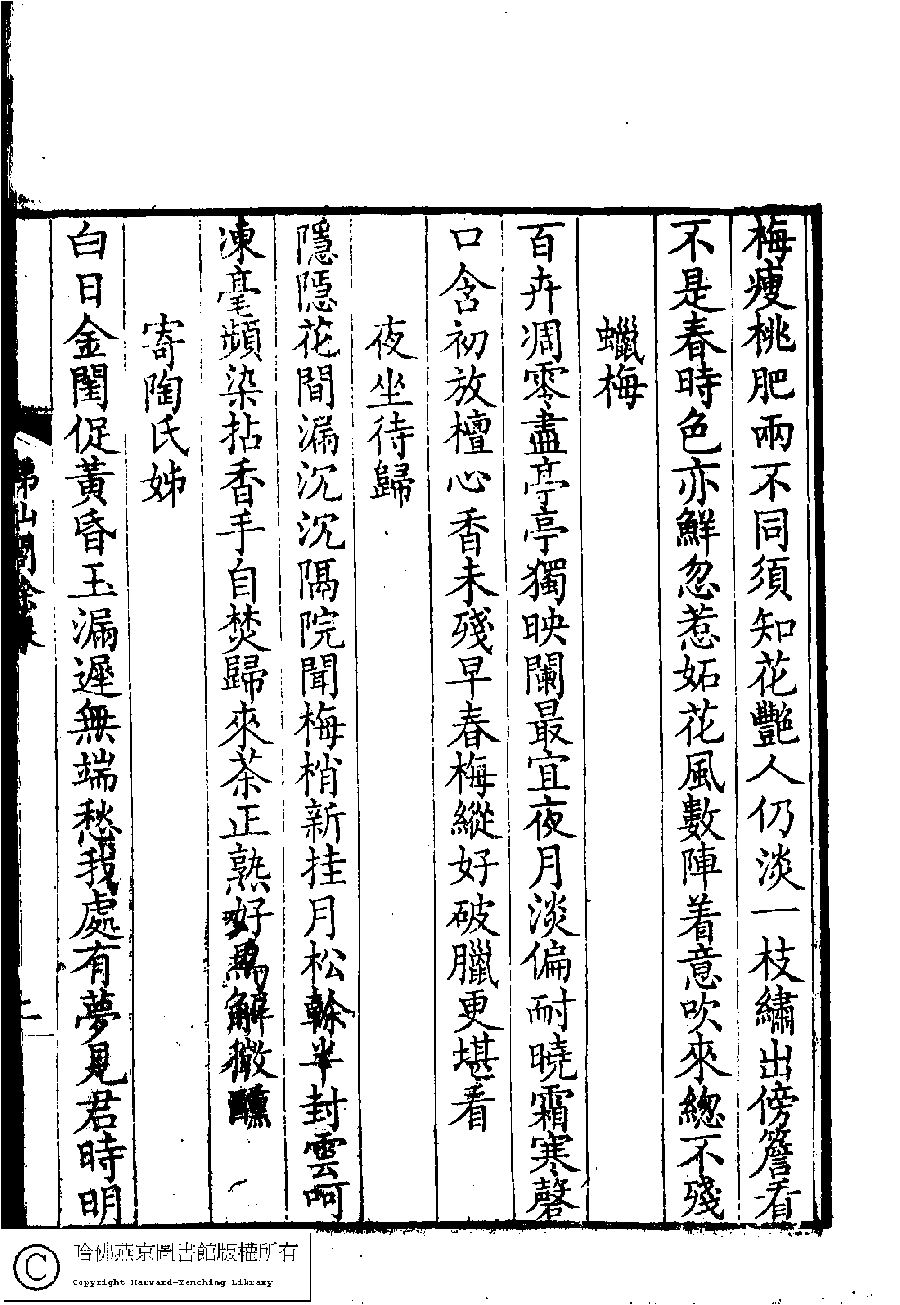 梅瘦桃肥兩不同須知花艷人仍淡一枝繡出傍簷看
不是春時色亦鮮忽惹妬花風數陣着意吹來總不殘
蠟梅
百卉凋零盡亭亭獨映闌最宜夜月淡偏耐曉霜寒磬
口含初放檀心香未殘早春梅縱好破臘更堪看
夜坐待歸
隱隱花間漏沉沉隔院聞梅梢新挂月松幹半封雲呵
凍毫頻染拈香手自焚歸來茶正熟好爲解微醺
寄陶氏姊
白日金閨促黃昏玉漏遲無端愁我處有夢見君時明
哈佛燕京圖書館版權所有
Copyright Harvard-Yenching Library